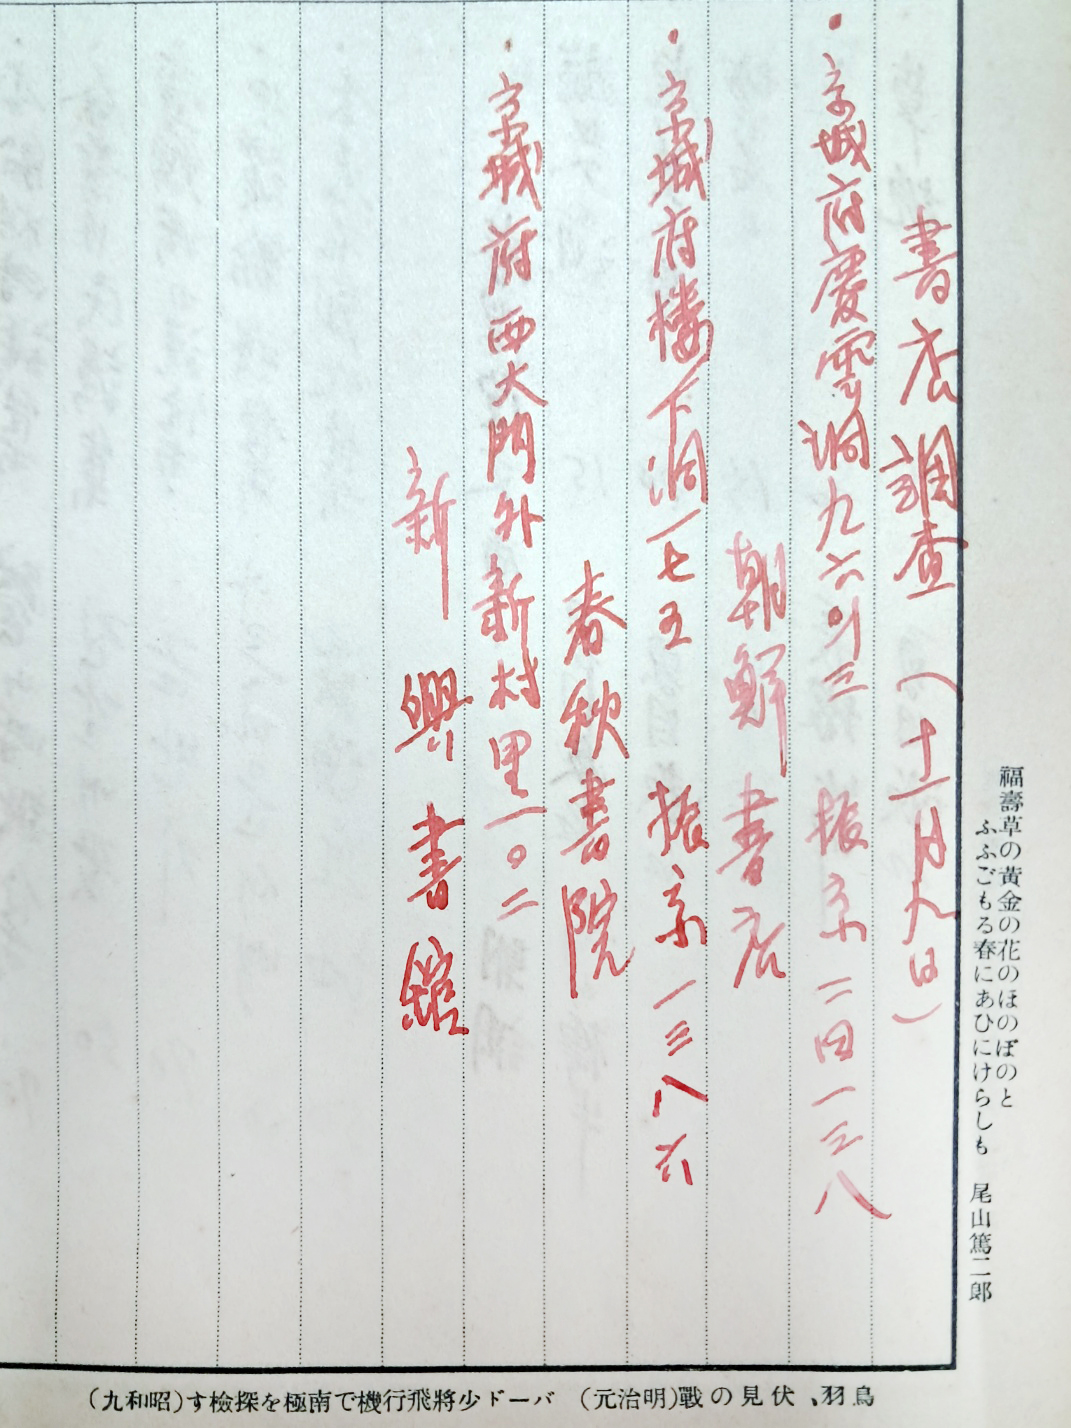 福壽草の黄金の花のほのぼのと
ふふごもる春にあひにけらしも　尾山篤二郎
書店調査（十一月九日）
・京城府慶雲洞九六의三　振京二四一三八
朝鮮書店
・京城府樓下洞一七五　振京一三八六
春秋書院
・京城府西大門外新村里一〇二
新興書館
鳥羽、伏見の戰(明治元)　バード少將飛行機で南極を探檢す(昭和九)